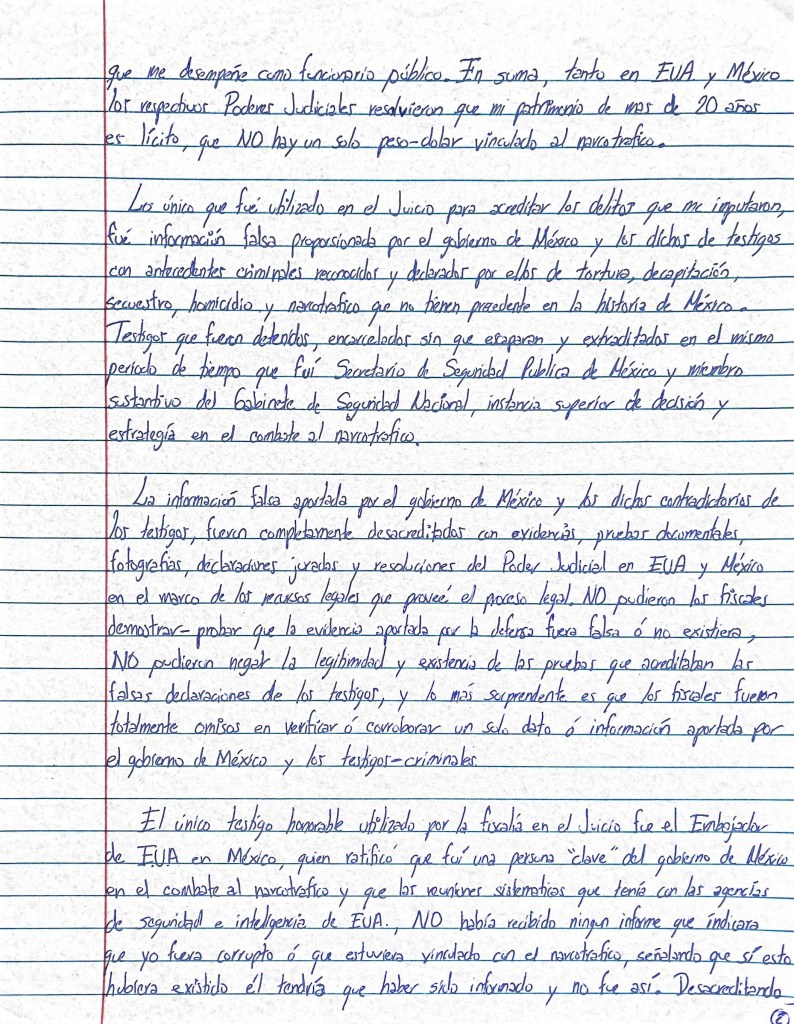 que me desempeñe como funcionario público. En suma, tanto en EUA y México
los respectivos Poderes Judiciales resolvieron que mi patrimonio de mas de 20 años
es lícito, que NO hay un solo peso-dolar vinculado al narcotrafico.
Los único que fué utilizado en el Juicio para acreditar los delitos que me imputaron,
fué información falsa proporsionada por el gobierno de México y los dichos de testigos
con antecedentes criminales reconocidos y declarados por ellos de tortura, decapitación,
secuestro, homicidio y narcotrafico que no tienen precedente en la historia de México.
Testigos que fueron detenidos, encarcelados sin que escaparan y extraditados en el mismo
periodo de tiempo que fuí Secretario de Seguridad Publica de México y miembro
sustantivo del Gabinete de Seguridad Nacional, instancia superior de decisión y
estrategía en el combate al narcotrafico.
La información falsa aportada por el gobierno de México y los dichos contradictorios de
los testigos, fueron completamente desacreditados con evidencias, pruebas documentales,
fotografías, declaraciones juradas y resoluciones del Poder Judicial en EUA y México
en el marco de los recursos legales que proveé el proceso legal. NO pudieron los fiscales
demostrar-probar que la evidencia aportada por la defensa fuera falsa ó no existiera,
NO pudieron negar la legitimidad y existencia de las pruebas que acreditaban las
falsas declaraciones de los testigos, y lo más sorprendente es que los fiscales fueron
totalmente omisos en verificar ó corroborar un solo dato ó información aportada por
el gobierno de México y los testigos-criminales.
El único testigo honorable utilizado por la fiscalía en el Juicio fue el Embajador
de EUA en México, quien ratificó que fuí una persona "clave" del gobierno de México
en el combate al narcotrafico y que las reuniones sistematicas que tenía con las agencias
de seguridad e inteligencia de EUA., NO había recibido ningun informe que indicara
que yo fuera corrupto ó que estuviera vinculado con el narcotrafico, señalando que sí esto
hubiera existido él tendría que haber sido informado y no fue así. Desacreditando
2